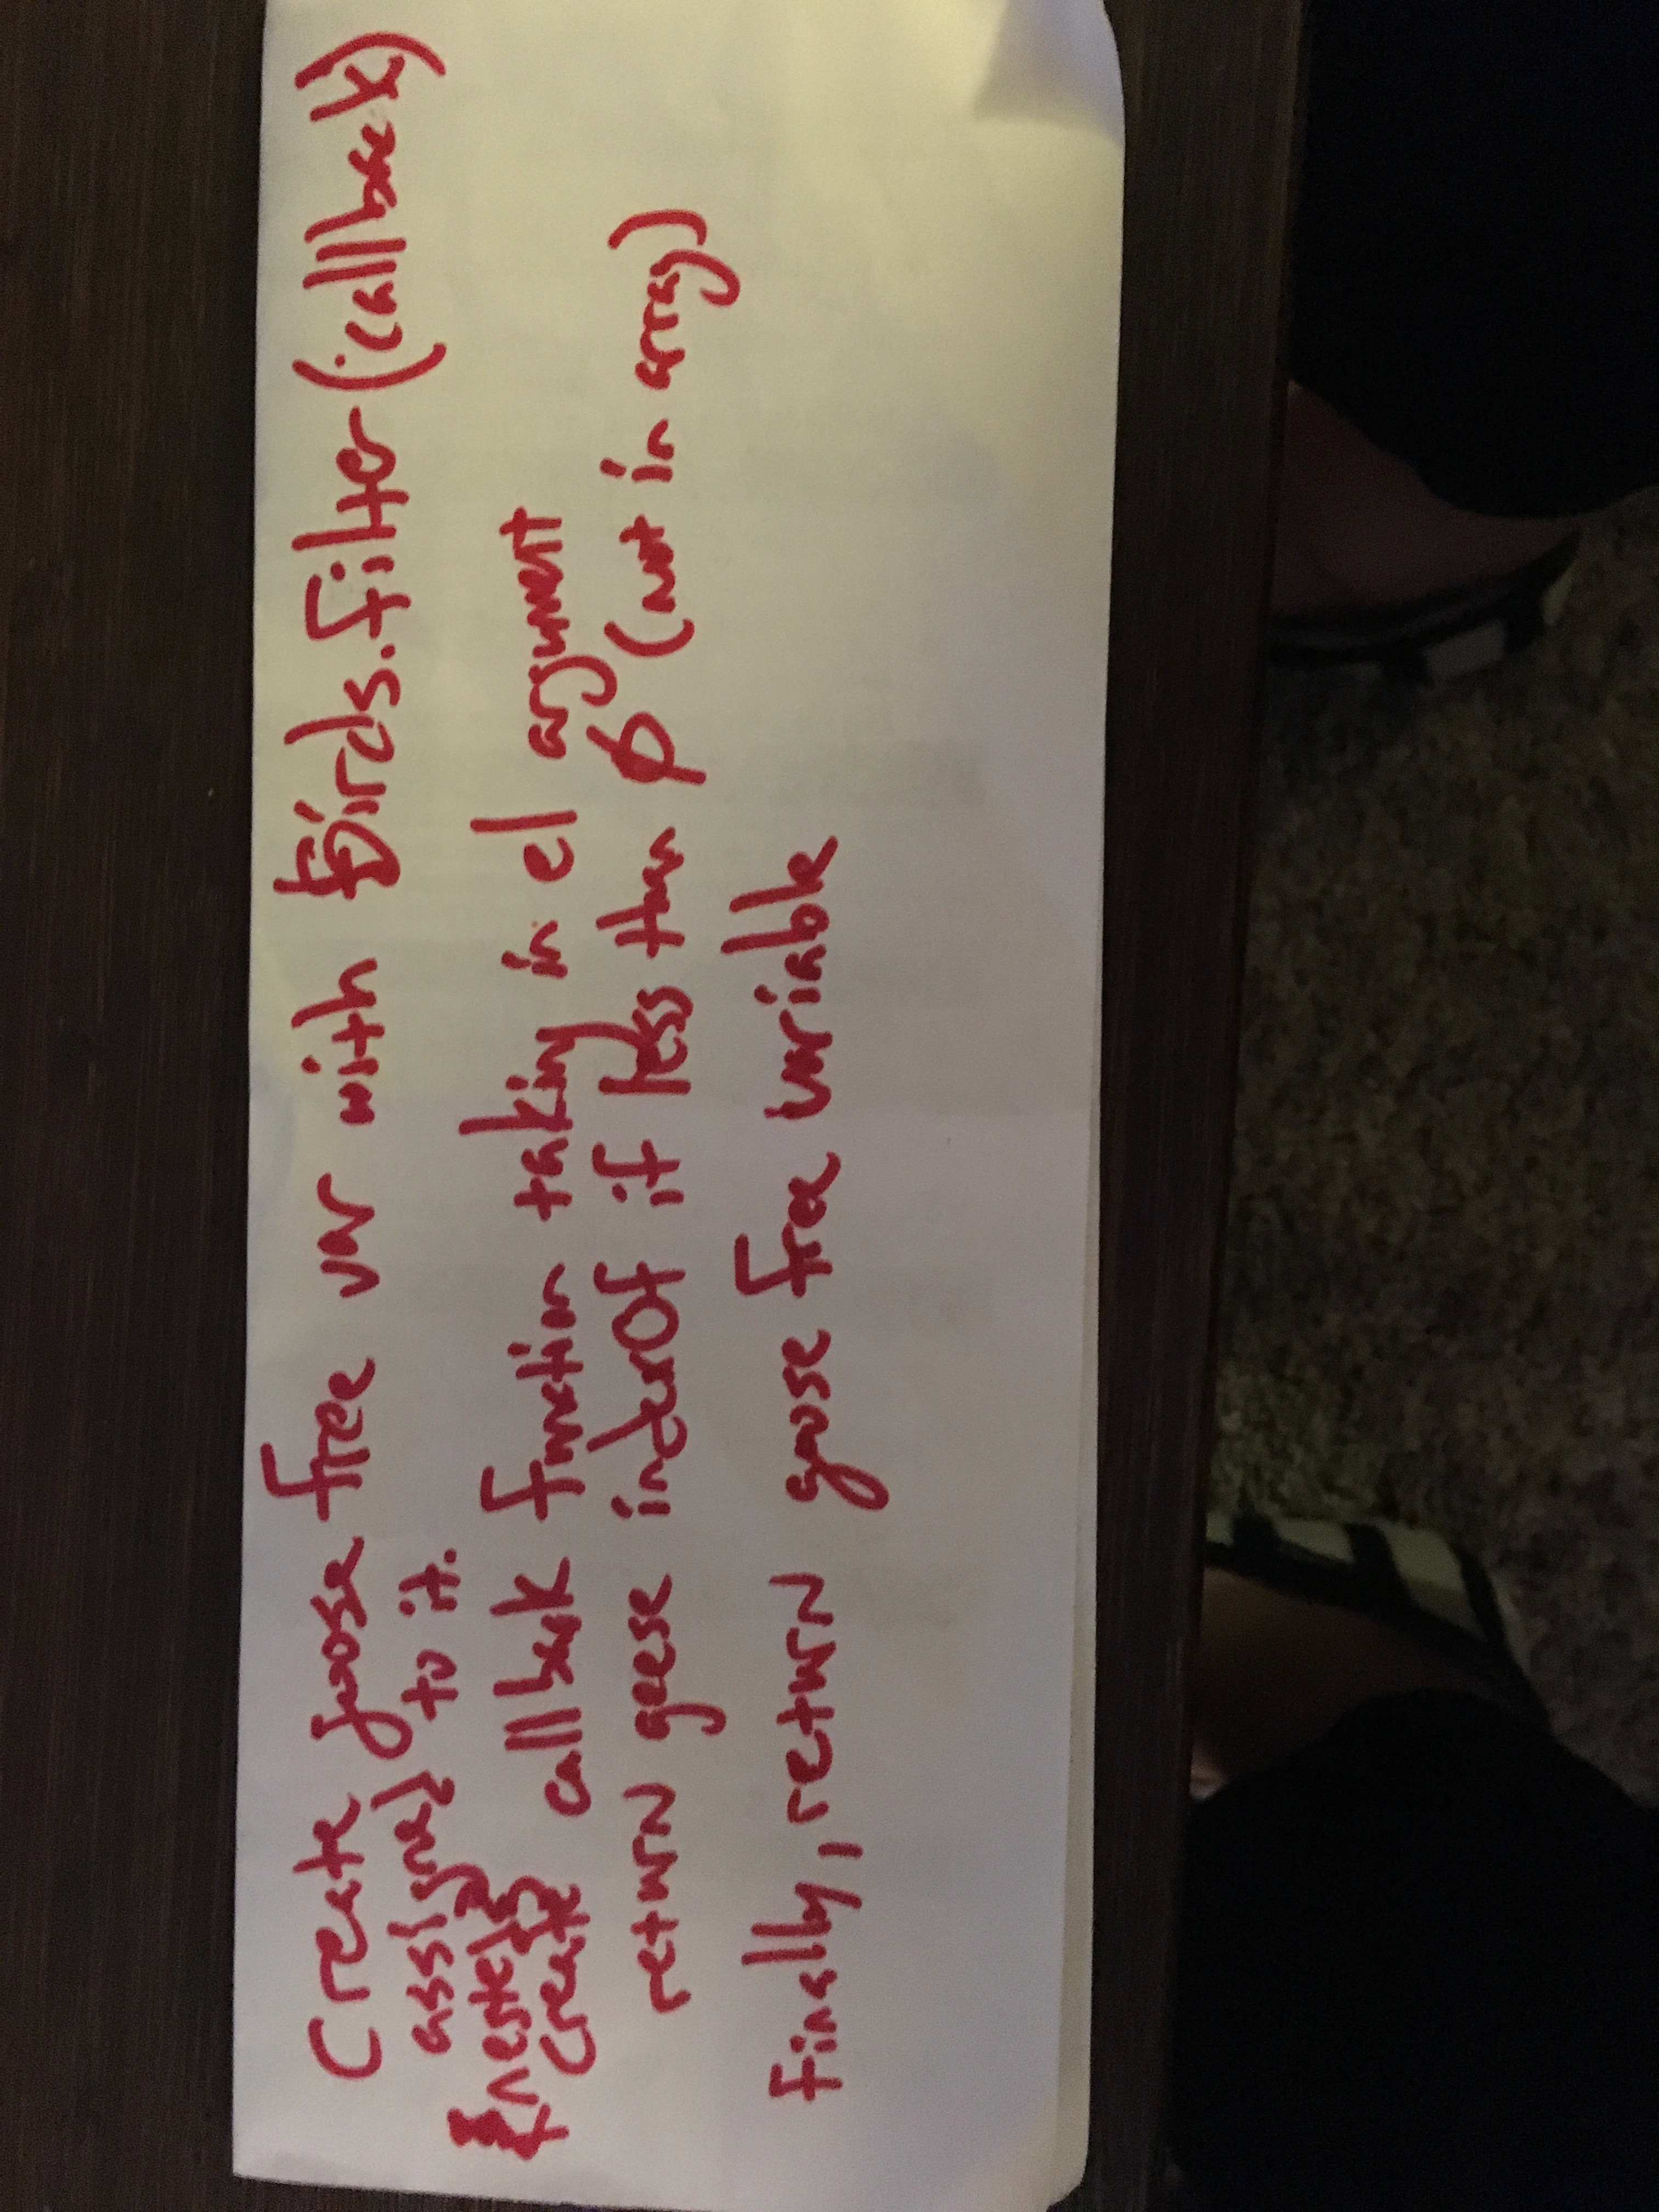 Create goose free var with birds.filter(callback)
assigned to it.
nested
create callback function taking in el argument
return geese indexOf if less than 0 (not in array)
Finally, return goose free variable